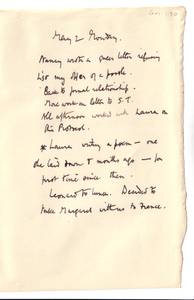 May 2 Monday.
Nancy wrote a queer letter refusing
List my offer of a poodle.
Back to formal relationship.
More work on letter to S.T.
All afternoon worked with Laura on
this Protocol.
* Laura writing a poem – one
she laid down 5 months ago – for
first time since then.
Leonard to lunch. Decided to
take Margaret with us to France.